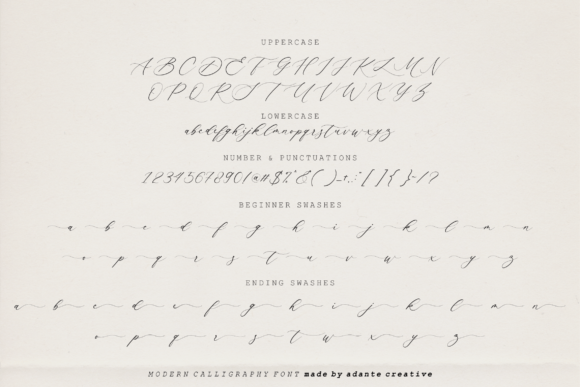 UPPERCASE
ABCDEFGHIJKLMN
OPQRSTUVWXYZ
LOWERCASE
abcdefghijklmnopqrstuvwxyz
NUMBER & PUNCTUATIONS
1234567890!@#$%&()-+,:;[]{}-/?
BEGINNER SWASHES
a b c d e f g h i j k l m n
o p q r s t u v w x y z
ENDING SWASHES
a b c d e f g h i j k l m n
o p q r s t u v w x y z
MODERN CALLIGRAPHY FONT made by adante creative